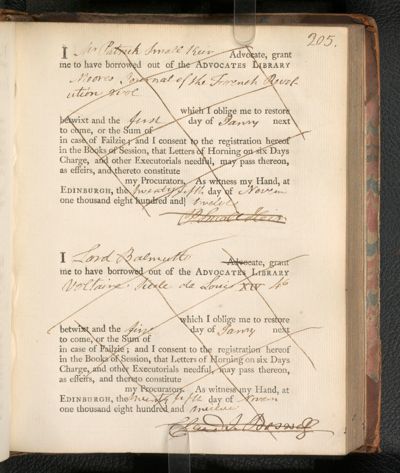 205.
I Mr Patrick Small Keir Advocate, grant
me to have borrowed out of the ADVOCATES LIBRARY
Moores Journal of the French Revol
ution 2 vol
which I oblige me to restore
betwixt and the first day of Janry next
to come, or the Sum of
in case of Failzie; and I consent to the registration hereof
in the Books of Session, that Letters of Horning on six Days
Charge, and other Executorials needful, may pass thereon,
as effeirs, and thereto constitute
my Procurators. As witness my Hand, at
EDINBURGH, the twenty fifth day of Novem
one thousand eight hundred and twelve
P Small Keir
I Lord Balmuto Advocate, grant
me to have borrowed out of the ADVOCATES LIBRARY
Voltaire Siecle de Louis XIV 4to
which I oblige me to restore
betwixt and the first day of Janry next
to come, or the Sum of
in case of Failzie; and I consent to the registration hereof
in the Books of Session, that Letters of Horning on six Days
Charge, and other Executorials needful, may pass thereon,
as effeirs, and thereto constitute
my Procurators. As witness my Hand, at
EDINBURGH, the twenty fifth day of Novem
one thousand eight hundred and twelve
Claud I. Boswell